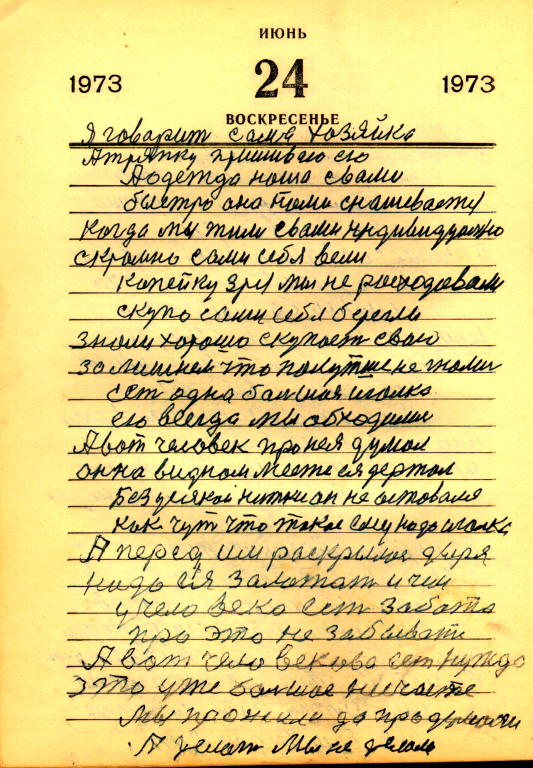 ИЮНЬ
1973 24 1973
ВОСКРЕСЕНЬЕ
Я говарит сама хозяйка
А тряпку пришиваю ею
А одежда наша свами
быстро она нами снашевается
Когда мы жили свами индивидуално
скромно сами себя вели
Капейку зря мы не расходавали
скупо сами себя берегли
Знали хорошо скупост сваю
за лишнем что
ест одна балшая иголка
ею всегда мы обходили
А вот человек про нея думал
он на видном месте ея держал
Без усякой нитки он не оставался
как чут что такое ему надо иголка
А перед им раскрылас дыря
надо ея залатат и чем
у человека ест забота
про это не забывати
А вот человекова ест нужда
это уже балшое несчасте
мы прожили да
А делат мы не делали